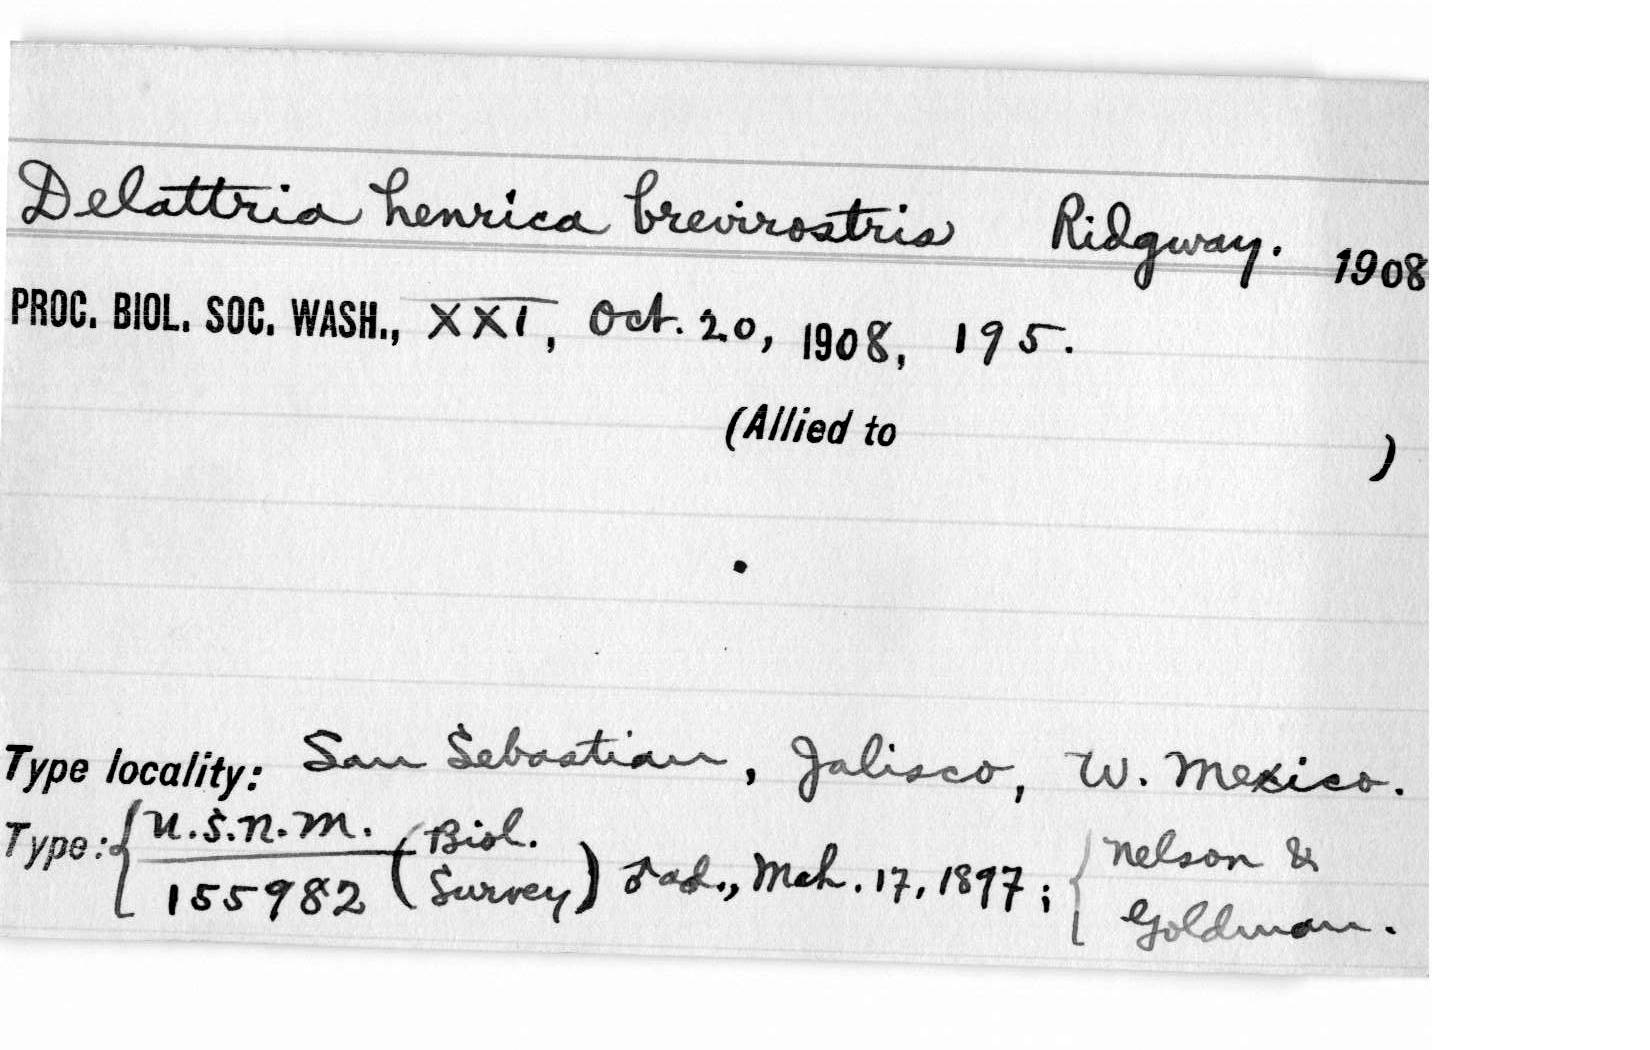 Delattria henrica brevirostris Ridgway. 1908
PROC. BIOL. SOC. WASH., XXI, Oct. 20, 1908, 195.
(Allied to )
Type locality: San Sebastian, Jalisco, W. Mexico.
Type: { U.S.N.M. (Biol. { Nelson &
155982 Survey) ♂ ad., Mch. 17, 1897; Goldman.